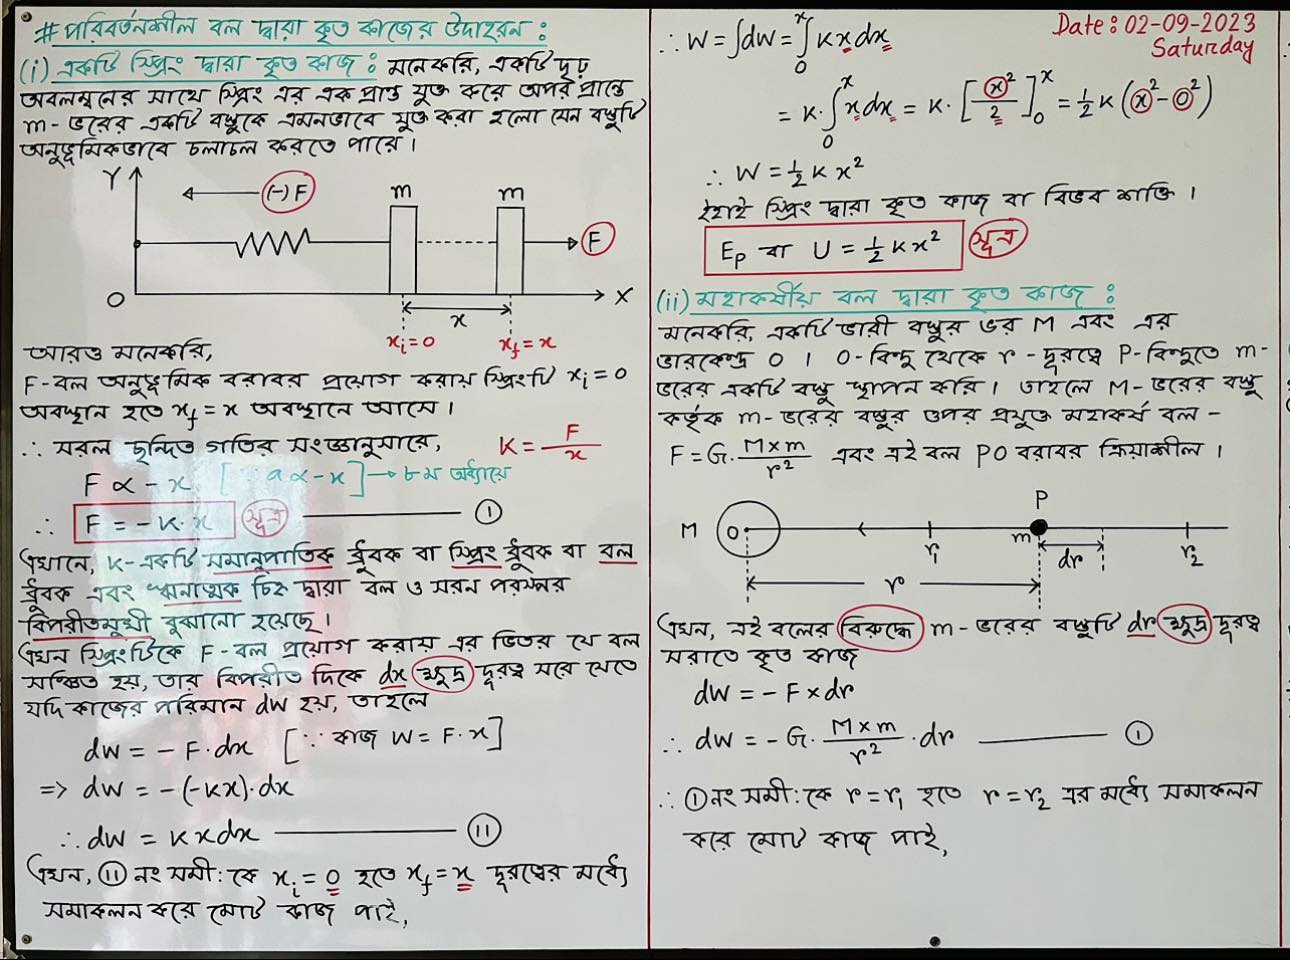 # পরিবর্তনশীল বল দ্বারা কৃত কাজের উদাহরন :
(i) একটি স্প্রিং দ্বারা কৃত কাজ : মনেকরি, একটি দৃঢ়
অবলম্বনের সাথে স্প্রিং এর এক প্রান্ত যুক্ত করে অপর প্রান্তে
m- ভরের একটি বস্তুকে এমনভাবে যুক্ত করা হলো যেন বস্তুটি
অনুভূমিকভাবে চলাচল করতে পারে।
Y
(-) F
m
m
F
O
X
x
xᵢ=0
x_f = x
আরও মনেকরি,
F-বল অনুভূমিক বরাবর প্রয়োগ করায় স্প্রিংটি xᵢ = 0
অবস্থান হতে x_f = x অবস্থানে আসে।
∴ সরল ছন্দিত গতির সংজ্ঞানুসারে,
K = F/x
F ∝ - x [∵ a ∝ -x] → ৮ম অধ্যায়ে
∴ F = - K. x সূত্র ——— ①
এখানে, K-একটি সমানুপাতিক ধ্রুবক বা স্প্রিং ধ্রুবক বা বল
ধ্রুবক এবং ঋনাত্মক চিহ্ন দ্বারা বল ও সরন পরস্পর
বিপরীতমুখী বুঝানো হয়েছে।
এখন স্প্রিংটিকে F-বল প্রয়োগ করায় এর ভিতর যে বল
সঞ্চিত হয়, তার বিপরীত দিকে dx ক্ষুদ্র দূরত্ব সরে যেতে
যদি কাজের পরিমান dw হয়, তাহলে
dw = - F.dx [∵ কাজ W = F.x]
=> dw = -(-Kx).dx
∴ dw = K x dx ——— ⑪
এখন, ⑪ নং সমী: কে xᵢ = 0 হতে x_f = x দূরত্বের মধ্যে
সমাকলন করে মোট কাজ পাই,
Date: 02-09-2023
Saturday
∴ W = ∫dw = ∫₀ˣ K x dx
= K. ∫₀ˣ x dx = K. [x²/2]₀ˣ = ½ K (x² - 0²)
∴ W = ½ K x²
ইহাই স্প্রিং দ্বারা কৃত কাজ বা বিভব শক্তি।
Eₚ বা U = ½ K x² সূত্র
(ii) মহাকর্ষীয় বল দ্বারা কৃত কাজ :
মনেকরি, একটি ভারী বস্তুর ভর M এবং এর
ভারকেন্দ্র O । O-বিন্দু থেকে r - দূরত্বে P-বিন্দুতে m-
ভরের একটি বস্তু স্থাপন করি। তাহলে M-ভরের বস্তু
কর্তৃক m-ভরের বস্তুর ওপর প্রযুক্ত মহাকর্ষ বল -
F = G. M×m/r² এবং এই বল PO বরাবর ক্রিয়াশীল।
P
M
O
r₁
m
dr
r₂
r
এখন, এই বলের বিরুদ্ধে m-ভরের বস্তুটি dr ক্ষুদ্র দূরত্ব
সরাতে কৃত কাজ
dw = - F × dr
∴ dw = - G. M×m/r² . dr ——— ①
∴ ① নং সমী: কে r = r₁ হতে r = r₂ এর মধ্যে সমাকলন
করে মোট কাজ পাই,